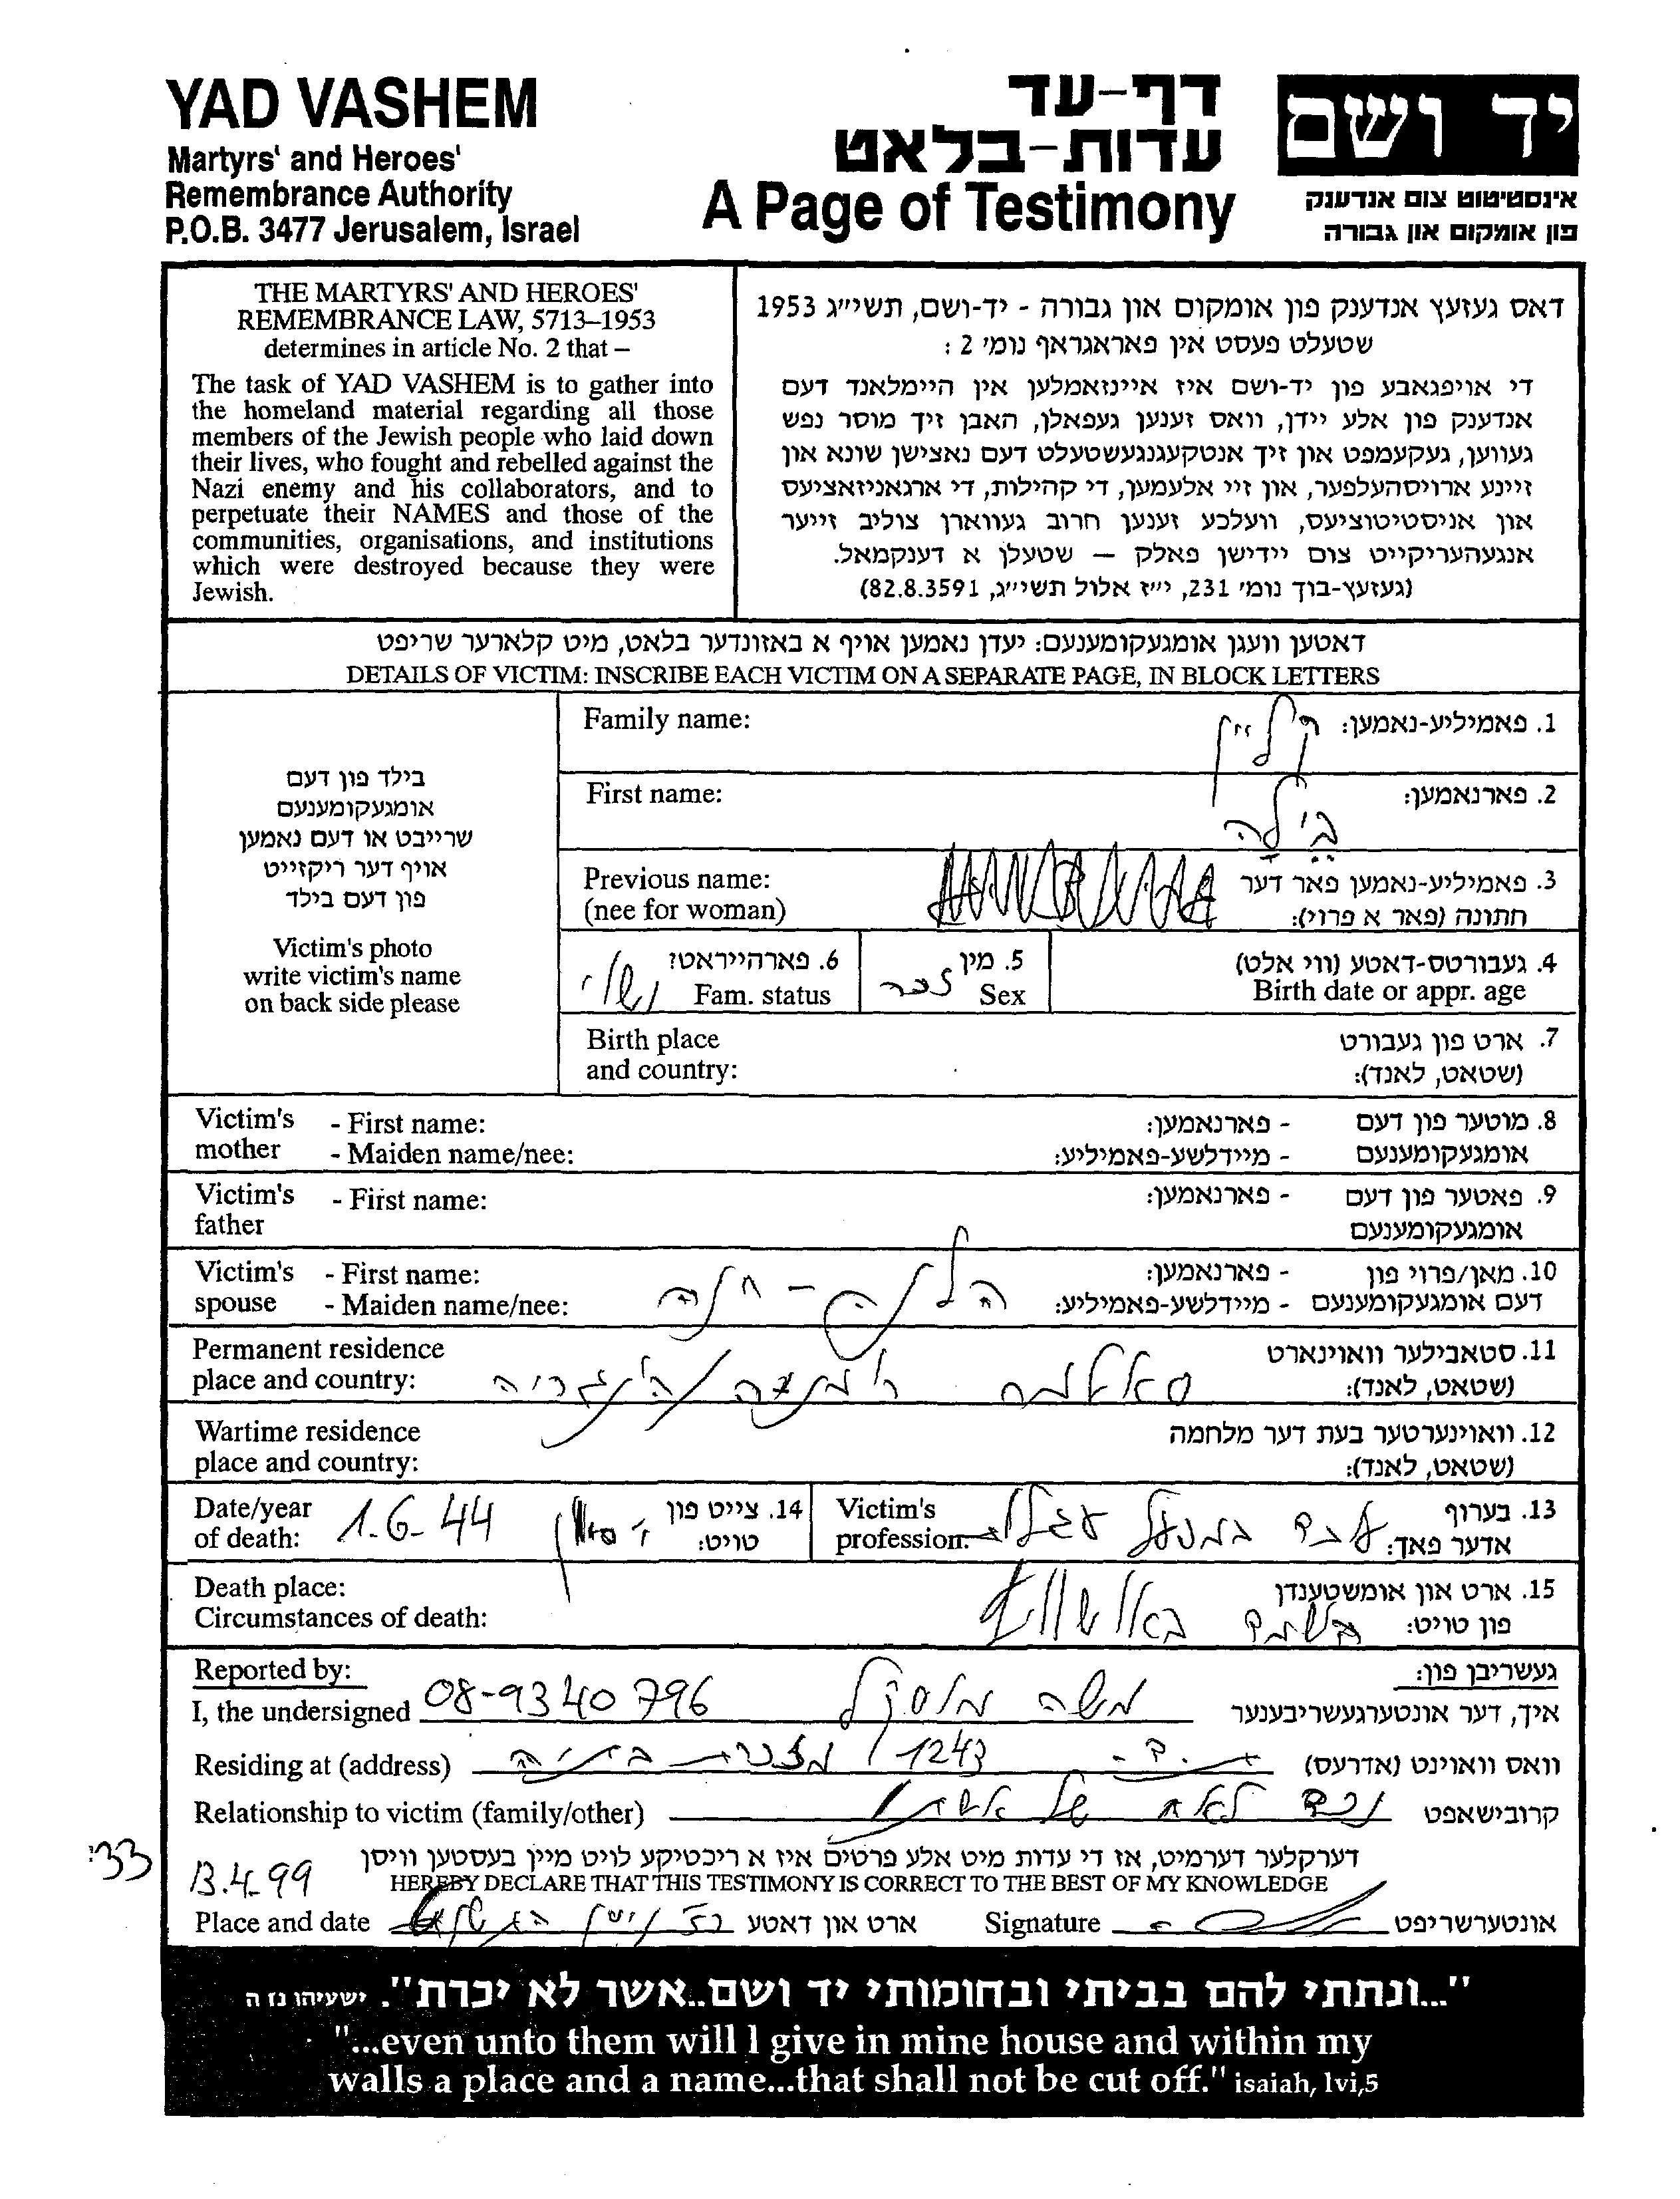 YAD VASHEM
Martyrs' and Heroes'
Remembrance Authority
P.O.B. 3477 Jerusalem, Israel
דף-עד
עדות-בלאט
A Page of Testimony
יד ושם
אינסטיטוט צום אנדענק
פון אומקום און גבורה
THE MARTYRS' AND HEROES'
REMEMBRANCE LAW, 5713–1953
determines in article No. 2 that –
The task of YAD VASHEM is to gather into
the homeland material regarding all those
members of the Jewish people who laid down
their lives, who fought and rebelled against the
Nazi enemy and his collaborators, and to
perpetuate their NAMES and those of the
communities, organisations, and institutions
which were destroyed because they were
Jewish.
דאס געזעץ אנדענק פון אומקום און גבורה - יד-ושם, תשי״ג 1953
שטעלט פעסט אין פאראגראף נומ׳ 2 :
די אויפגאבע פון יד-ושם איז איינזאמלען אין היימלאנד דעם
אנדענק פון אלע יידן, וואס זענען געפאלן, האבן זיך מוסר נפש
געווען, געקעמפט און זיך אנטקעגנגעשטעלט דעם נאצישן שונא און
זיינע ארויסהעלפער, און זיי אלעמען, די קהילות, די ארגאניזאציעס
און אניסטיטוציעס, וועלכע זענען חרוב געווארן צוליב זייער
אנגעהעריקייט צום יידישן פאלק — שטעלן א דענקמאל.
(געזעץ-בוך נומ׳ 231, י״ז אלול תשי״ג, 82.8.3591)
דאטען וועגן אומגעקומענעם: יעדן נאמען אויף א באזונדער בלאט, מיט קלארער שריפט
DETAILS OF VICTIM: INSCRIBE EACH VICTIM ON A SEPARATE PAGE, IN BLOCK LETTERS
בילד פון דעם
אומגעקומענעם
שרייבט או דעם נאמען
אויף דער ריקזייט
פון דעם בילד
Victim's photo
write victim's name
on back side please
Family name: קליין 1. פאמיליע-נאמען:
First name: בילה 2. פארנאמען:
Previous name: 3. פאמיליע-נאמען פאר דער
(nee for woman) חתונה (פאר א פרוי):
נשוי 6. פארהייראט? Fam. status
זכר 5. מין Sex
4. געבורטס-דאטע (ווי אלט)
Birth date or appr. age
Birth place 7. ארט פון געבורט
and country: (שטאט, לאנד):
Victim's - First name: - פארנאמען: 8. מוטער פון דעם
mother - Maiden name/nee: - מיידלשע-פאמיליע: אומגעקומענעם
Victim's - First name: - פארנאמען: 9. פאטער פון דעם
father אומגעקומענעם
Victim's - First name: - פארנאמען: 10. מאן/פרוי פון
spouse - Maiden name/nee: - מיידלשע-פאמיליע: דעם אומגעקומענעם
Permanent residence 11. סטאבילער וואוינארט
place and country: (שטאט, לאנד):
Wartime residence 12. וואוינערטער בעת דער מלחמה
place and country: (שטאט, לאנד):
Date/year of death: 1.6.44 סיוון 14. צייט פון טויט:
Victim's profession: עבד במפעל 13. בערוף אדער פאך:
Death place: 15. ארט און אומשטענדן
Circumstances of death: באושוויץ פון טויט:
Reported by: געשריבן פון:
I, the undersigned 08-9340796 משה איך, דער אונטערגעשריבענער
Residing at (address) ת.ד. 1243 מזכרת בתיה וואס וואוינט (אדרעס)
Relationship to victim (family/other) של אשתי קרובישאפט
:33
דערקלער דערמיט, אז די עדות מיט אלע פרטים איז א ריכטיקע לויט מיין בעסטען וויסן
13.4.99
HEREBY DECLARE THAT THIS TESTIMONY IS CORRECT TO THE BEST OF MY KNOWLEDGE
Place and date כז ניסן ארט און דאטע Signature אונטערשריפט
"...ונתתי להם בביתי ובחומותי יד ושם..אשר לא יכרת". ישעיהו נז ה
"...even unto them will I give in mine house and within my
walls a place and a name...that shall not be cut off." isaiah, lvi,5